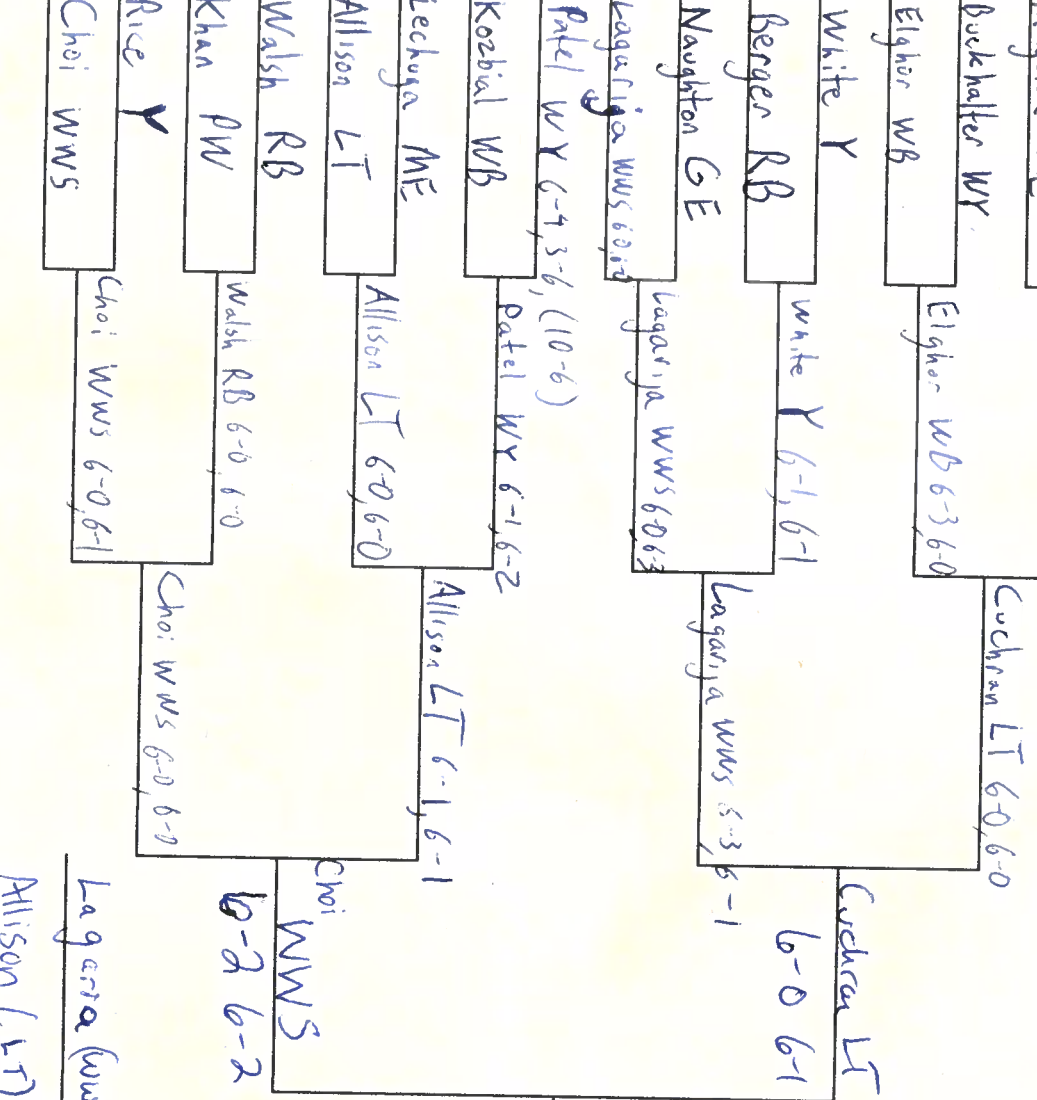 Buckhalter WY
Elghor WB
White Y
Berger RB
Naughton GE
Lagarija WWS
Patel WY 6-4,3-6,(10-6)
Kozbial WB
Lechuga ME
Allison LT
Walsh RB
Khan PW
Rice Y
Choi WWS
Elghor WB 6-3,6-0
White Y 6-1,6-1
Lagarija WWS 6-0 6-3
Patel WY 6-1,6-2
Allison LT 6-0,6-0
Walsh RB 6-0,6-0
Choi WWS 6-0,6-1
Cochran LT 6-0,6-0
Lagarija WWS 6-3,6-1
Allison LT 6-1,6-1
Choi WWS 6-0,6-0
Cochran LT
6-0 6-1
Choi WWS
6-2 6-2
Lagarija (WW
Allison (LT)